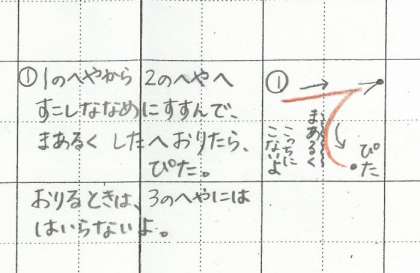 ①1のへやから 2のへやへ
すこしななめにすすんで、
まあるく したへ おりたら、
ぴた。
おりるときは、3のへやには
はいらないよ。
①
まあるく
こっちに
こないよ
ぴた